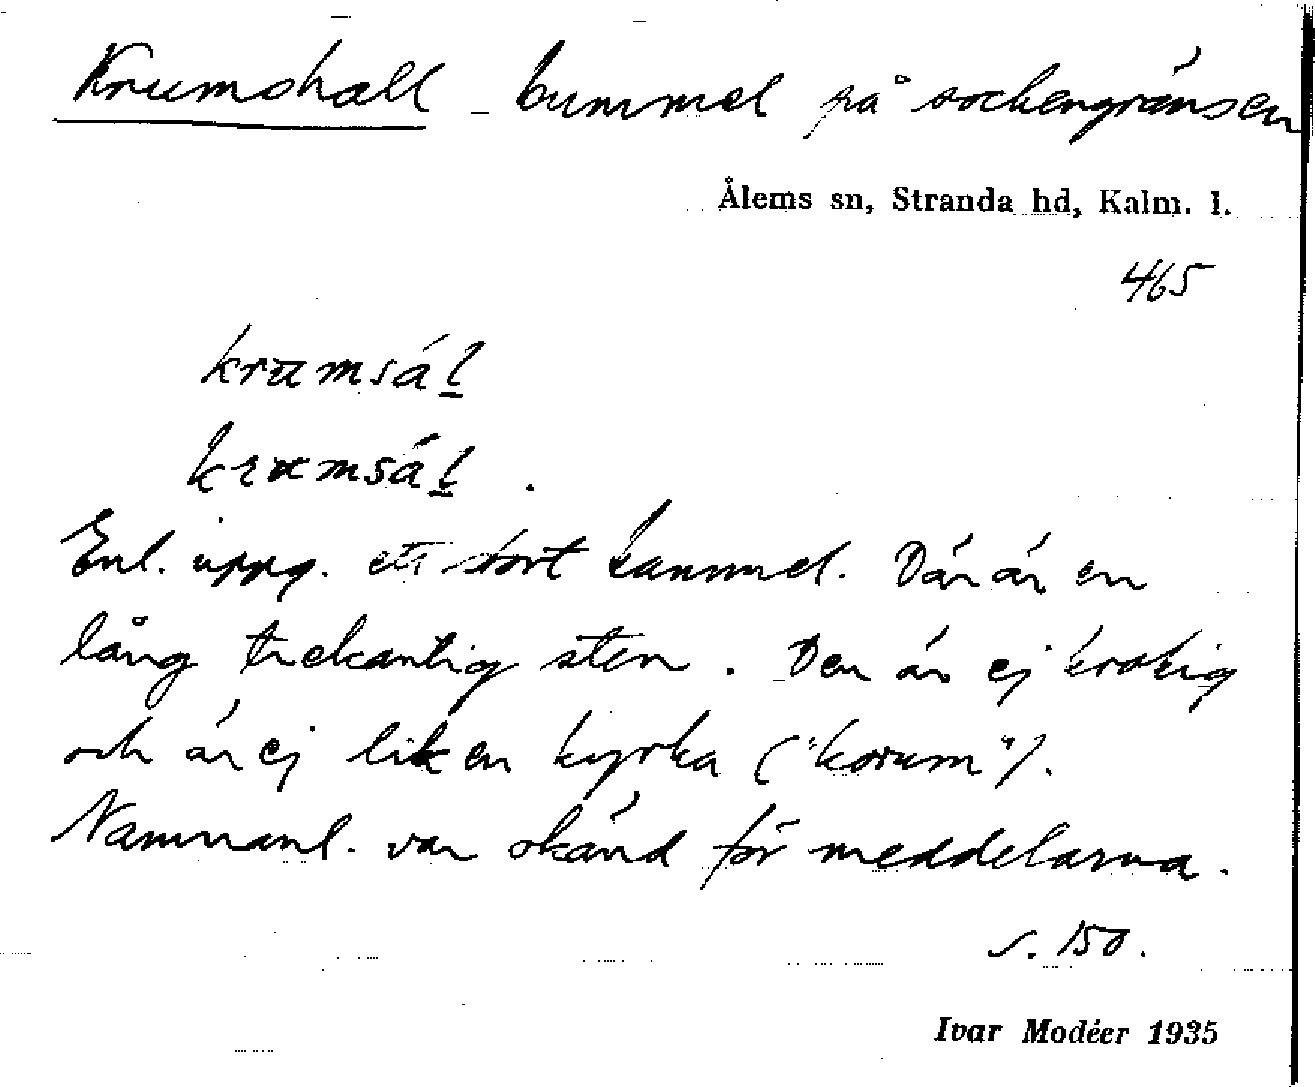 Krumshall - bummel på sockengränsen
Ålems sn, Stranda hd, Kalm. l.
465
krumsál
krumsál.
Enl. uppg. ett stort bummel. Där är en
lång trekantig sten. Den är ej krokig
och är ej lik en kyrka ("korum").
Namnanl. var okänd för meddelarna.
s. 150.
Ivar Modéer 1935